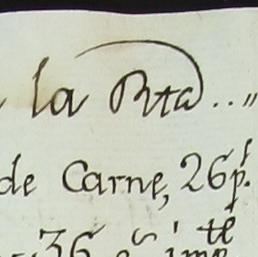 la Rta..."
de Carne, 26p.s
36